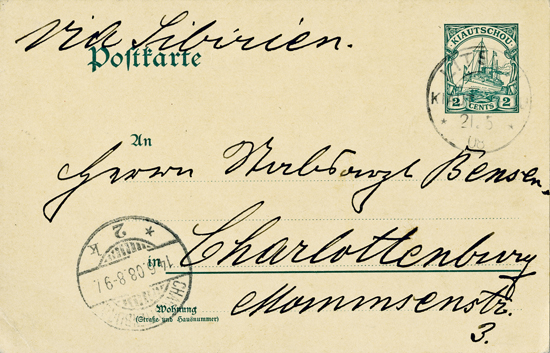 via Sibirien.
Postkarte
KIAUTSCHOU
2 CENTS 2
21. 5
08
An
Herrn Stabsarzt Bensen
* 2 k
in Charlottenburg
14.6.08.8-9V.
Mommsenstr.
Wohnung
(Straße und Hausnummer)
3.